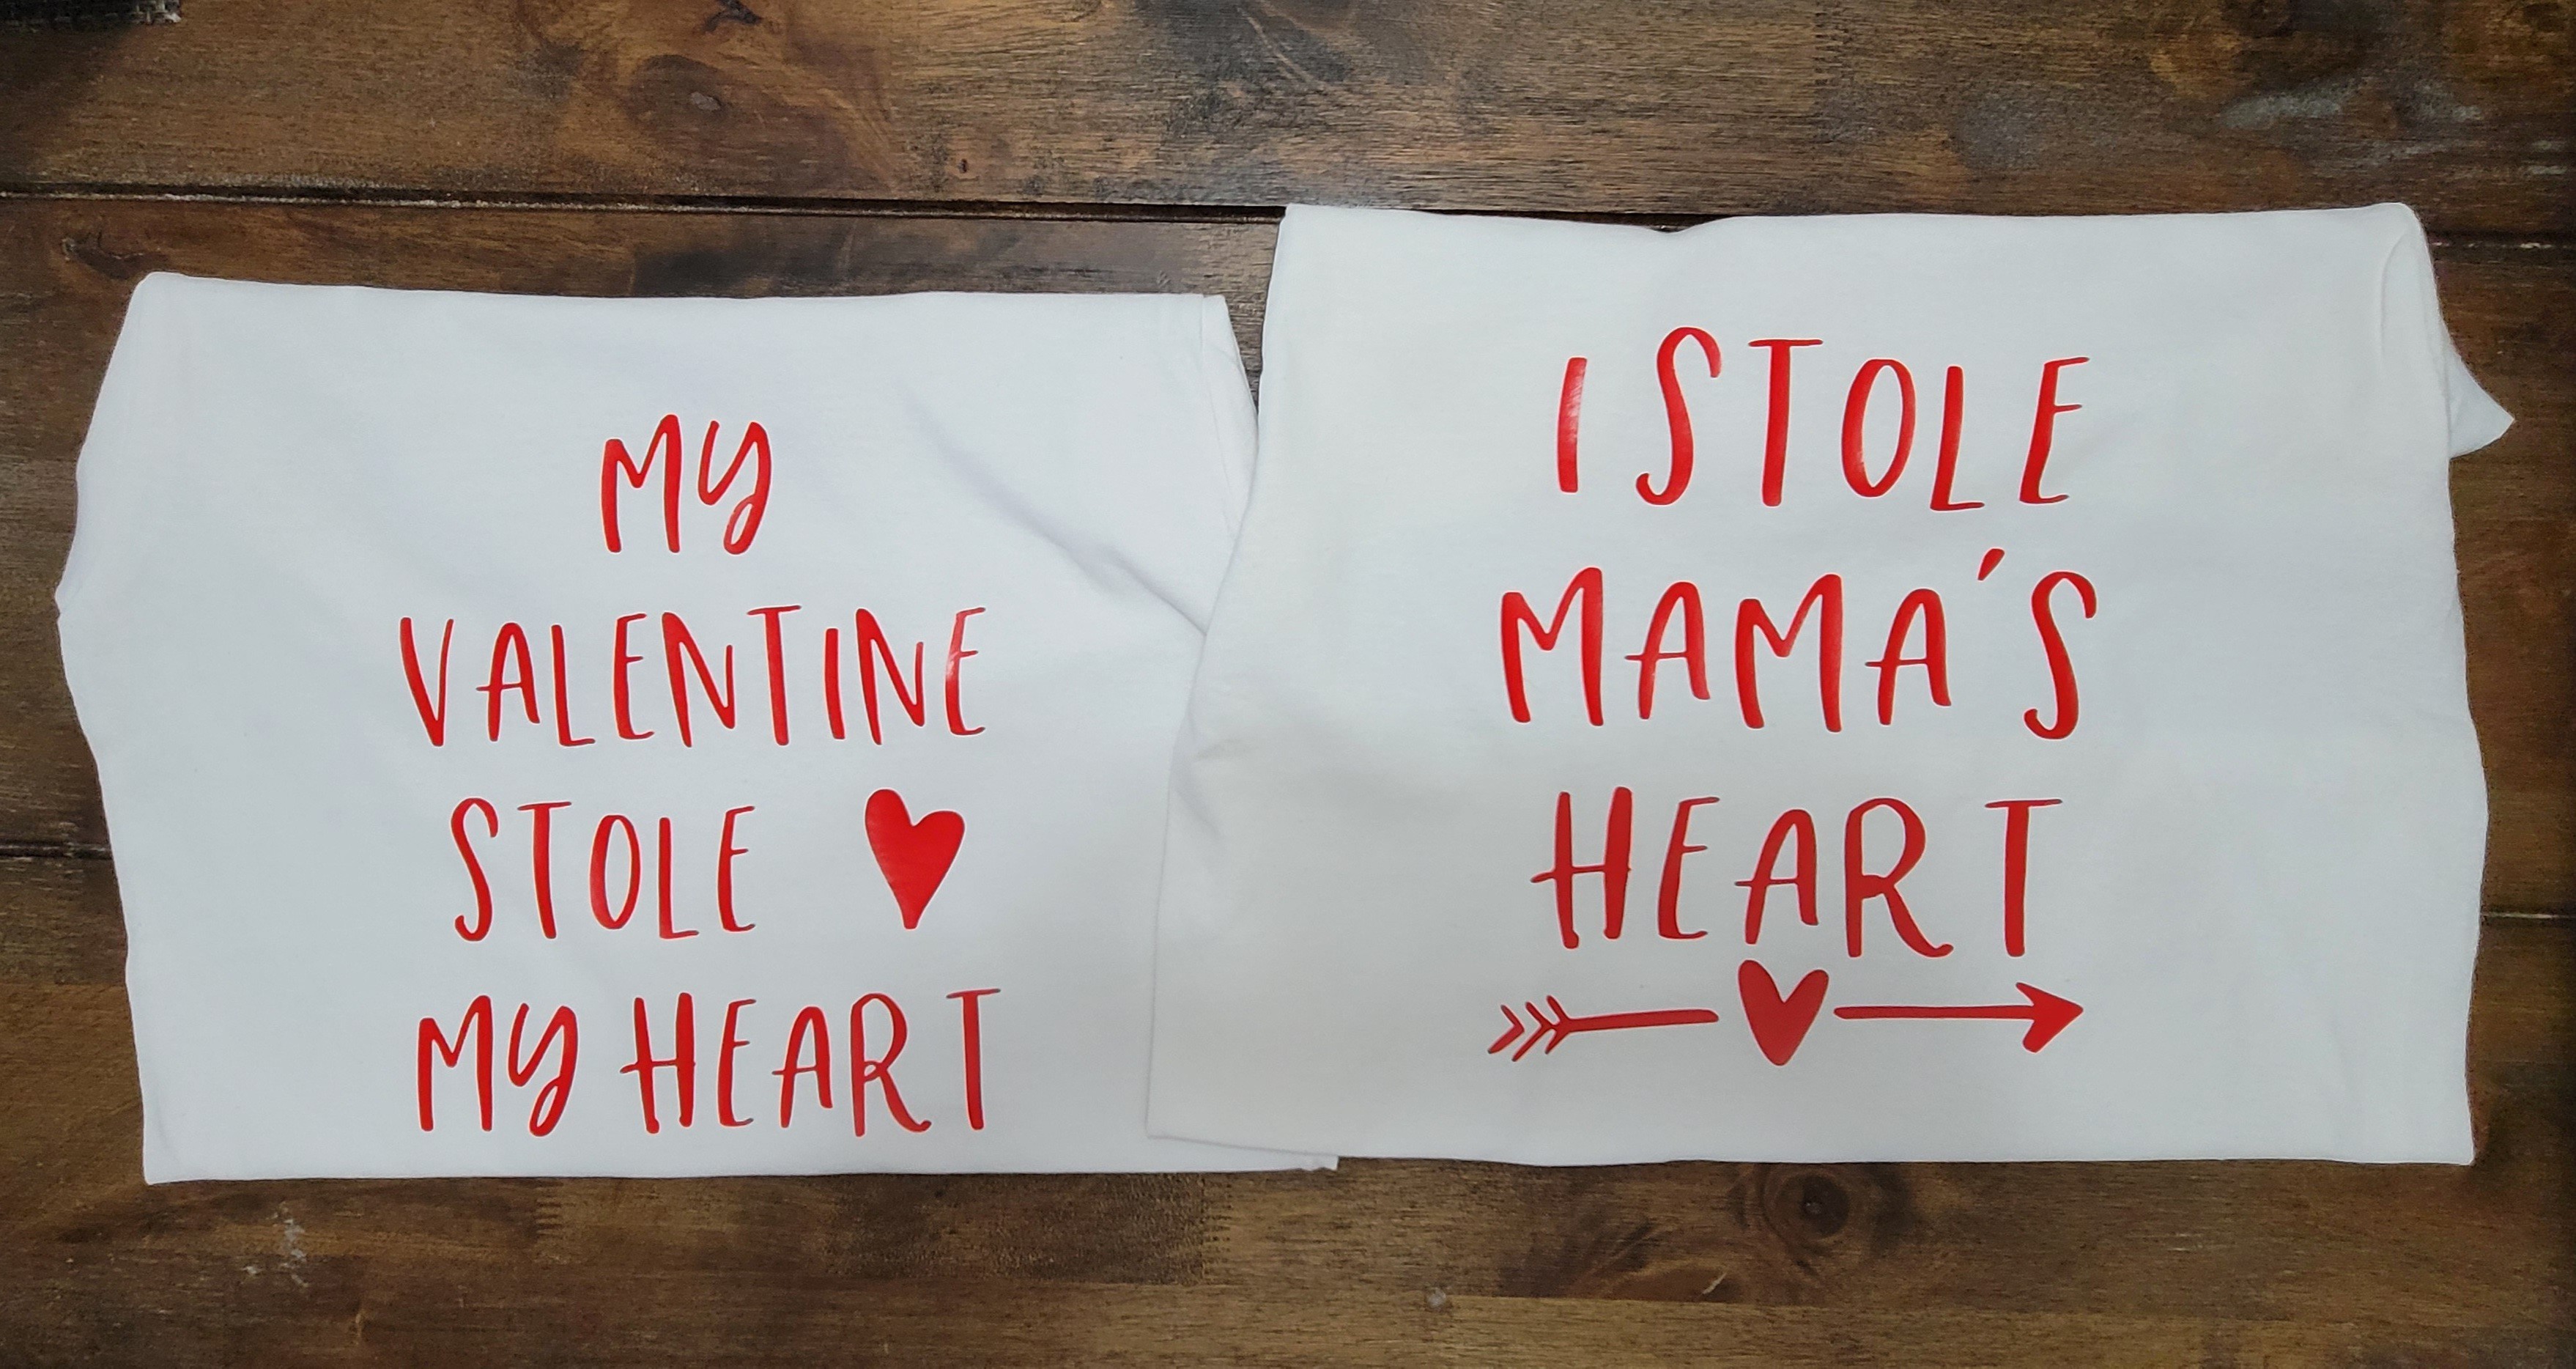 MY
VALENTINE
STOLE
MY HEART
I STOLE
MAMA'S
HEART